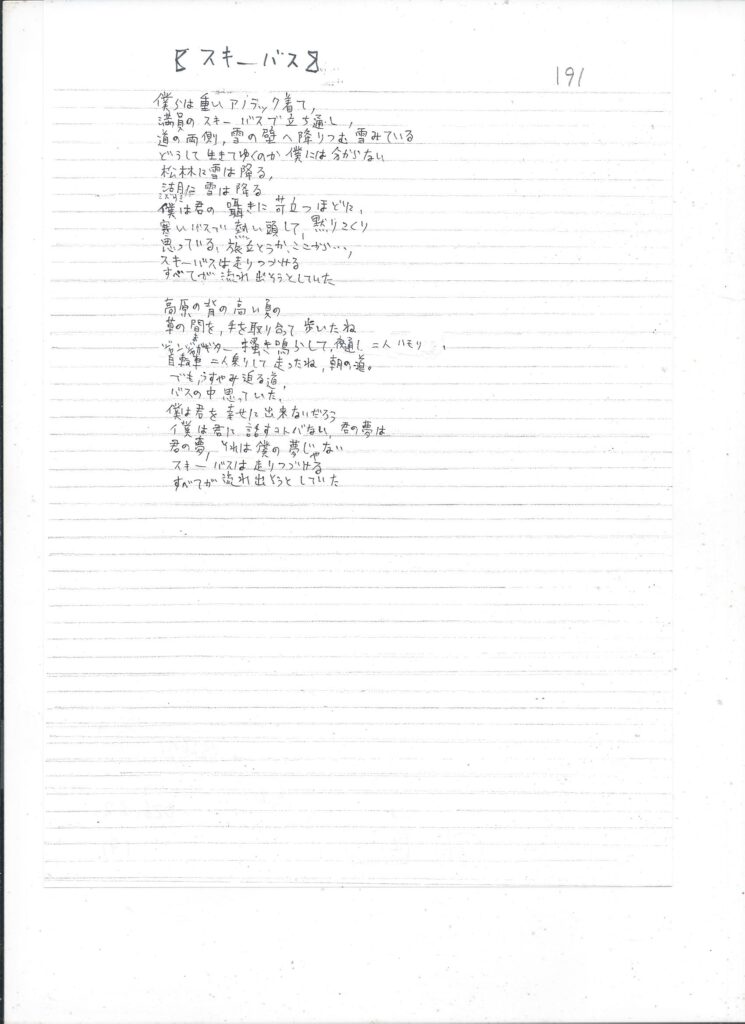 【スキーバス】
191
僕らは重いアノラック着て,
満員のスキーバスで立ち通し,
道の両側,雪の壁へ降りつむ雪みている
どうして生きてゆくのか僕には分からない
松林に雪は降る,
湖に雪は降る
みずうみ
僕は君の囁きに苛立つほどに,
寒いバスで熱い頭して,黙りこくり
思っている,旅立とうか,ここから…,
スキーバスは走りつづける
すべてが流れ出そうとしていた
高原の背の高い夏の
草の間を,手を取り合って歩いたね
ギター掻き鳴らして,夜通し二人ハモり
自転車二人乗りして走ったね,朝の道。
でも,うすやみ迫る道,
バスの中思っていた,
僕は君を幸せに出来ないだろう
僕は君に話すコトバない,君の夢は
君の夢,それは僕の夢じゃない
スキーバスは走りつづける
すべてが流れ出そうとしていた